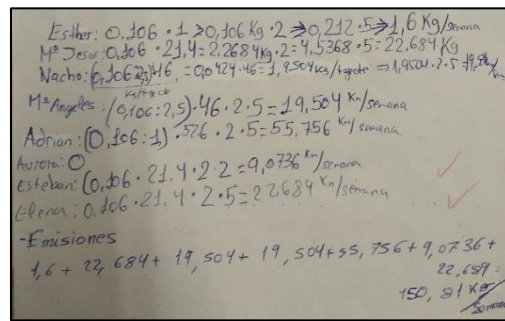 Esther: 0.106 · 1 ⇒ 0,106 Kg · 2 ⇒ 0,212 · 5 ⇒ 1,6 Kg/semana
Mª Jesus: 0.106 · 21,4 = 2,2684 Kg · 2 = 4,5368 · 5 = 22,684 Kg
Nacho: (0,106:2,5)·46 = 0,0424 · 46 = 1,9504 kg/trayecto ⇒ 1,9504 · 2 · 5 =
Mª Angeles: (0,106:2,5)·46 · 2 · 5 = 19,504 Km/semana
Adrian: (0.106:1)·526 · 2 · 5 = 55,756 Km/semana
Aurora: 0
Esteban: (0.106 · 21.4 · 2 · 2 = 9,0736 Km/semana
Elena: 0.106 · 21.4 · 2 · 5 = 22.684 Km/semana
-Emisiones
1,6 + 22,684 + 19,504 + 19,504 + 55,756 + 9,0736 +
22,684 =
150,81 Kg/semana